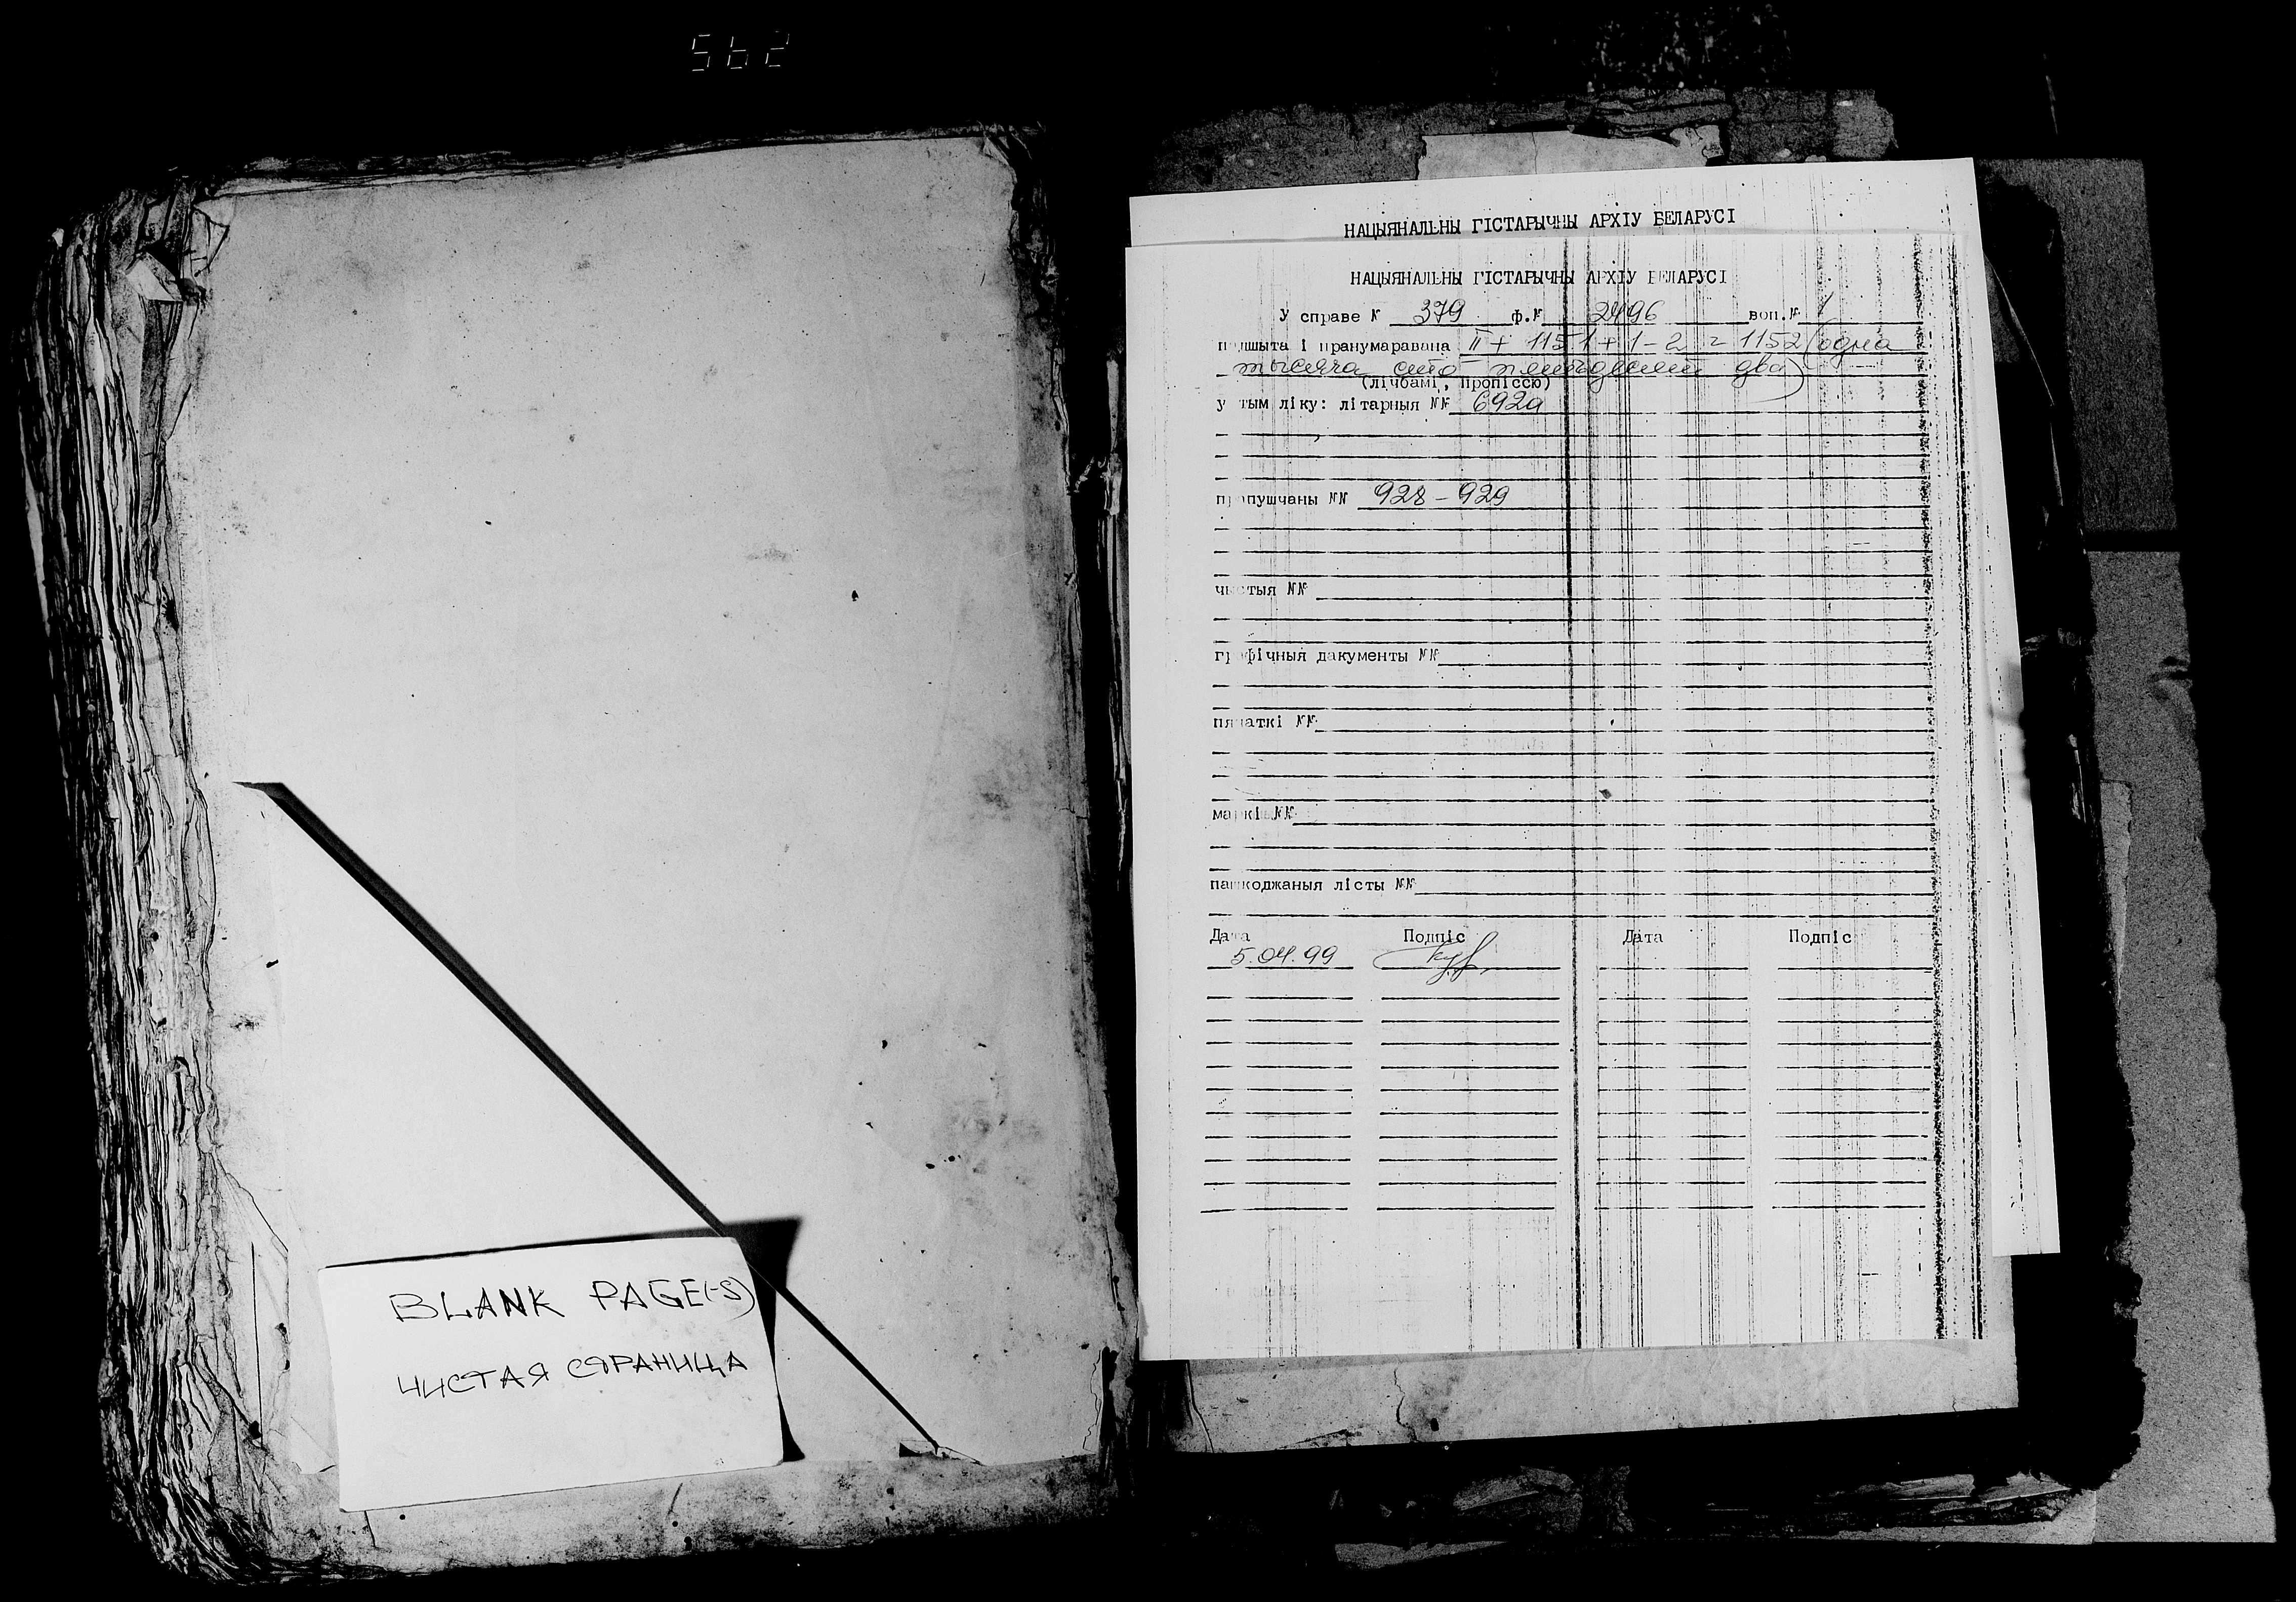 562
НАЦЫЯНАЛЬНЫ ГІСТАРЫЧНЫ АРХІУ БЕЛАРУСІ
НАЦЫЯНАЛЬНЫ ГІСТАРЫЧНЫ АРХІУ БЕЛАРУСІ
У справе № 379 ф.№ 2496 воп.№ 1
падшыта і пранумаравана II + 1151 + 1 - 2 = 1152 (одна
тысяча сто пятьдесят два)
(лічбамі, пропіссю)
у тым ліку: літарныя №№ 692а
прапушчаны №№ 928 - 929
чыстыя №№
графічныя дакументы №№
пячаткі №№
маркі №№
пашкоджаныя лісты №№
Дата Подпіс Дата Подпіс
5.04.99
BLANK PAGE(-S)
ЧИСТАЯ СТРАНИЦА